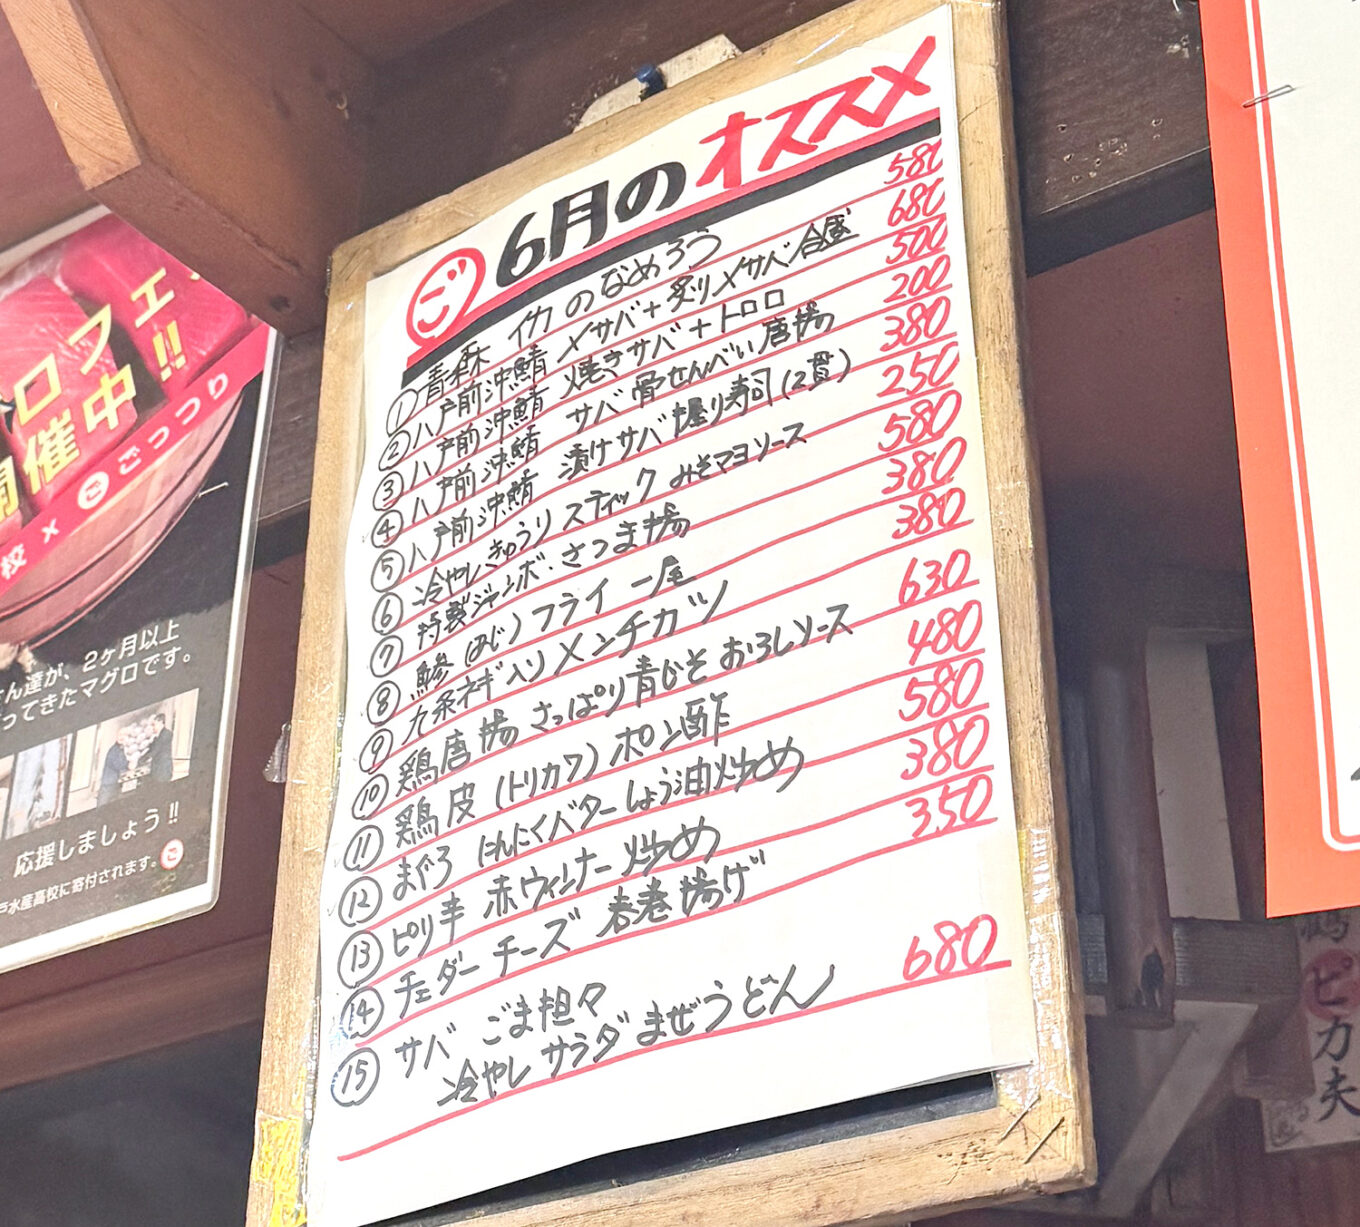 ご 6月のオススメ
① 青森 イカのなめろう 580
② 八戸前沖鯖 〆サバ+炙り〆サバ合盛 680
③ 八戸前沖鯖 焼きサバ+トロロ 500
④ 八戸前沖鯖 サバ骨せんべい唐揚 200
⑤ 八戸前沖鯖 漬けサバ握り寿司(2貫) 380
⑥ 冷やしきゅうりスティック みそマヨソース 250
⑦ 特製ジャンボ・さつま揚 580
⑧ 鯵(あじ)フライ一尾 380
⑨ 九条ネギ入りメンチカツ 380
⑩ 鶏唐揚 さっぱり青じそおろしソース 630
⑪ 鶏皮(トリカワ)ポン酢 480
⑫ まぐろ にんにくバターしょう油炒め 580
⑬ ピリ辛 赤ウィンナー炒め 380
⑭ チェダーチーズ 春巻揚げ 350
⑮ サバ ごま担々
冷やし サラダまぜうどん 680
ロフェ
開催中!!
校×ごごっつり
さん達が、2ヶ月以上
ってきたマグロです。
応援しましょう!!ご
戸水産高校に寄付されます。
ピ
力
夫